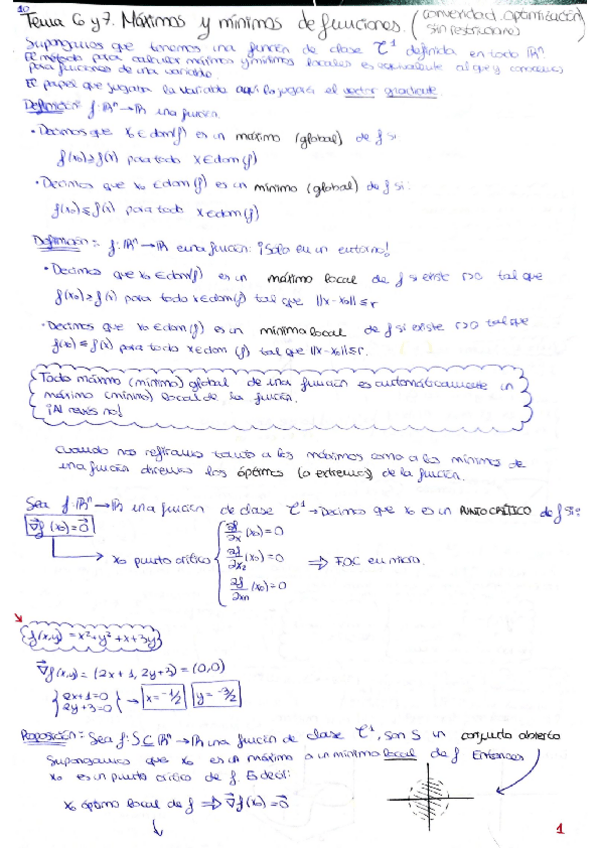 10
Tema 6 y 7. Máximos y mínimos de funciones. (convexidad. Optimización sin restricciones)
Supongamos que tenemos una función de clase C¹ definida en todo ℝⁿ.
El método para calcular máximos y mínimos locales es equivalente al que ya conocemos
para funciones de una variable.
El papel que jugaba la variable aquí lo jugará el vector gradiente.
Definición: f: ℝⁿ → ℝ una función.
• Decimos que x₀ ∈ dom(f) es un máximo (global) de f si
f(x₀) ≥ f(x) para todo x ∈ dom(f)
• Decimos que x₀ ∈ dom(f) es un mínimo (global) de f si:
f(x₀) ≤ f(x) para todo x ∈ dom(f)
Definición: f: ℝⁿ → ℝ es una función: ¡Sólo en un entorno!
• Decimos que x₀ ∈ dom(f) es un máximo local de f si existe r>0 tal que
f(x₀) ≥ f(x) para todo x ∈ dom(f) tal que ||x-x₀|| ≤ r
• Decimos que x₀ ∈ dom(f) es un mínimo local de f si existe r>0 tal que
f(x₀) ≤ f(x) para todo x ∈ dom (f) tal que ||x-x₀|| ≤ r.
Todo máximo (mínimo) global de una función es automáticamente un
máximo (mínimo) local de la función.
¡Al revés no!
Cuando nos refiramos tanto a los máximos como a los mínimos de
una función diremos los óptimos (o extremos) de la función.
Sea f: ℝⁿ → ℝ una función de clase C¹ → Decimos que x₀ es un PUNTO CRÍTICO de f si:
∇f (x₀) = 0
x₀ punto crítico
∂f/∂x (x₀) = 0
∂f/∂x₂ (x₀) = 0
∂f/∂xn (x₀) = 0
⇒ FOC en micro.
f(x,y) = x² + y² + x + 3y
∇f(x,y) = (2x + 1, 2y + 3) = (0,0)
2x+1=0
2y+3=0
→ x = -1/2 y = -3/2
Proposición: Sea f: S ⊆ ℝⁿ → ℝ una función de clase C¹, son S un conjunto abierto
Supongamos que x₀ es un máximo o un mínimo local de f. Entonces
x₀ es un punto crítico de f. Es decir:
x₀ óptimo local de f ⇒ ∇f(x₀) = 0
1